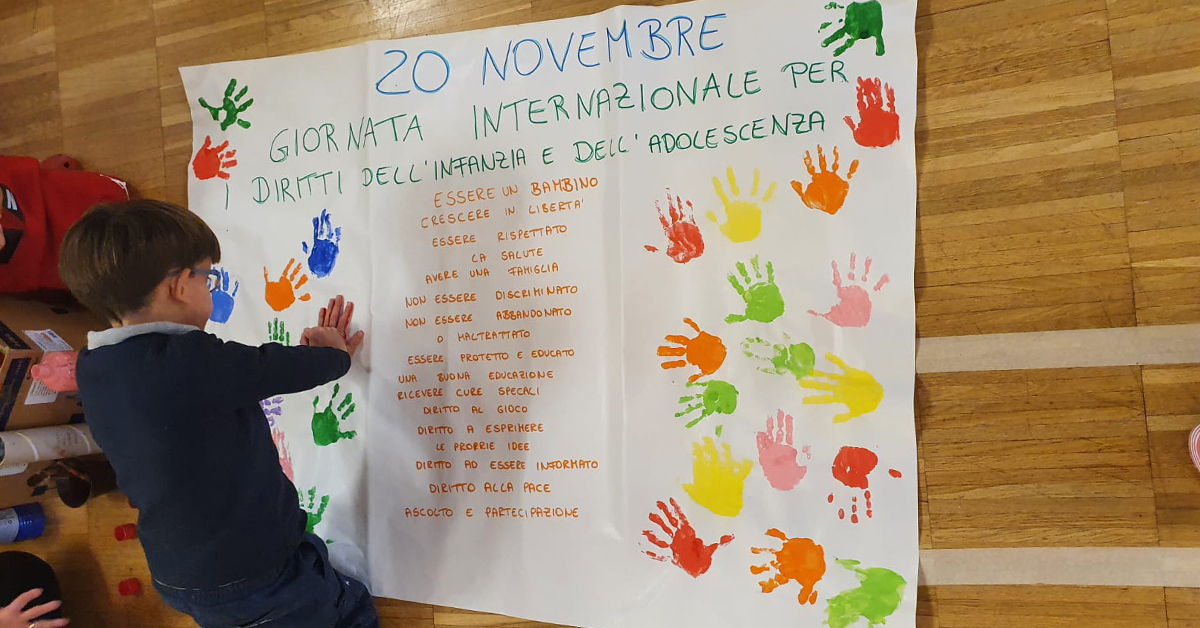 20 NOVEMBRE
GIORNATA INTERNAZIONALE PER
I DIRITTI DELL'INFANZIA E DELL'ADOLESCENZA
ESSERE UN BAMBINO
CRESCERE IN LIBERTA'
ESSERE RISPETTATO
LA SALUTE
AVERE UNA FAMIGLIA
NON ESSERE DISCRIMINATO
NON ESSERE ABBANDONATO
O MALTRATTATO
ESSERE PROTETTO E EDUCATO
UNA BUONA EDUCAZIONE
RICEVERE CURE SPECALI
DIRITTO AL GIOCO
DIRITTO A ESPRIMERE
LE PROPRIE IDEE
DIRITTO AD ESSERE INFORMATO
DIRITTO ALLA PACE
ASCOLTO E PARTECIPAZIONE